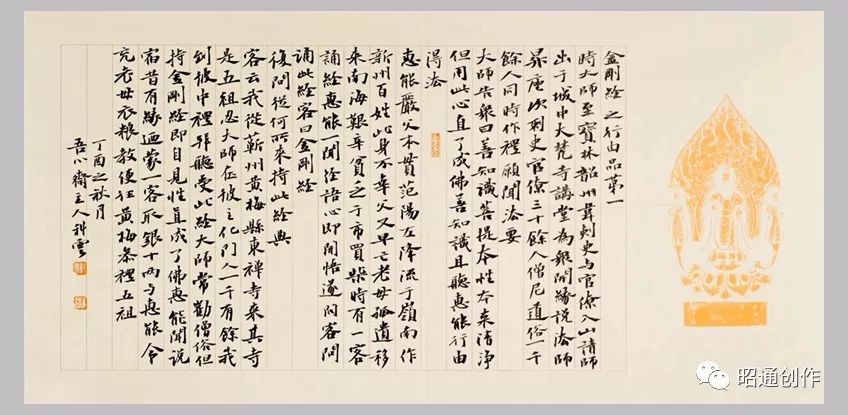 金剛經之行由品第一
時大師至寶林韶州韋刺史與官僚入山請師
出于城中大梵寺講堂為眾開緣說法師
昇座次刺史官僚三十餘人僧尼道俗一千
餘人同時作禮願聞法要
大師告眾曰善知識菩提本性本來清净
但用此心直了成佛善知識且聽惠能行由
得法
惠能嚴父本貫范陽左降流于嶺南作
新州百姓此身不幸父又早亡老母孤遺移
來南海艱辛貧乏于市買柴時有一客
誦經惠能聞經語心即開悟遂問客問
誦此經客曰金剛經
復問從何所來持此經典
客云我從蘄州黃梅縣東禪寺來其寺
是五祖忍大師在彼主化門人一千有餘我
到彼中禮拜聽受此經大師常勸僧俗但
持金剛經即自見性直成了佛惠能聞說
宿昔有緣迺蒙一客取銀十兩与惠能令
充老母衣糧教便往黃梅參禮五祖
丁酉之秋月
吾心齋主人科雲
昭通创作